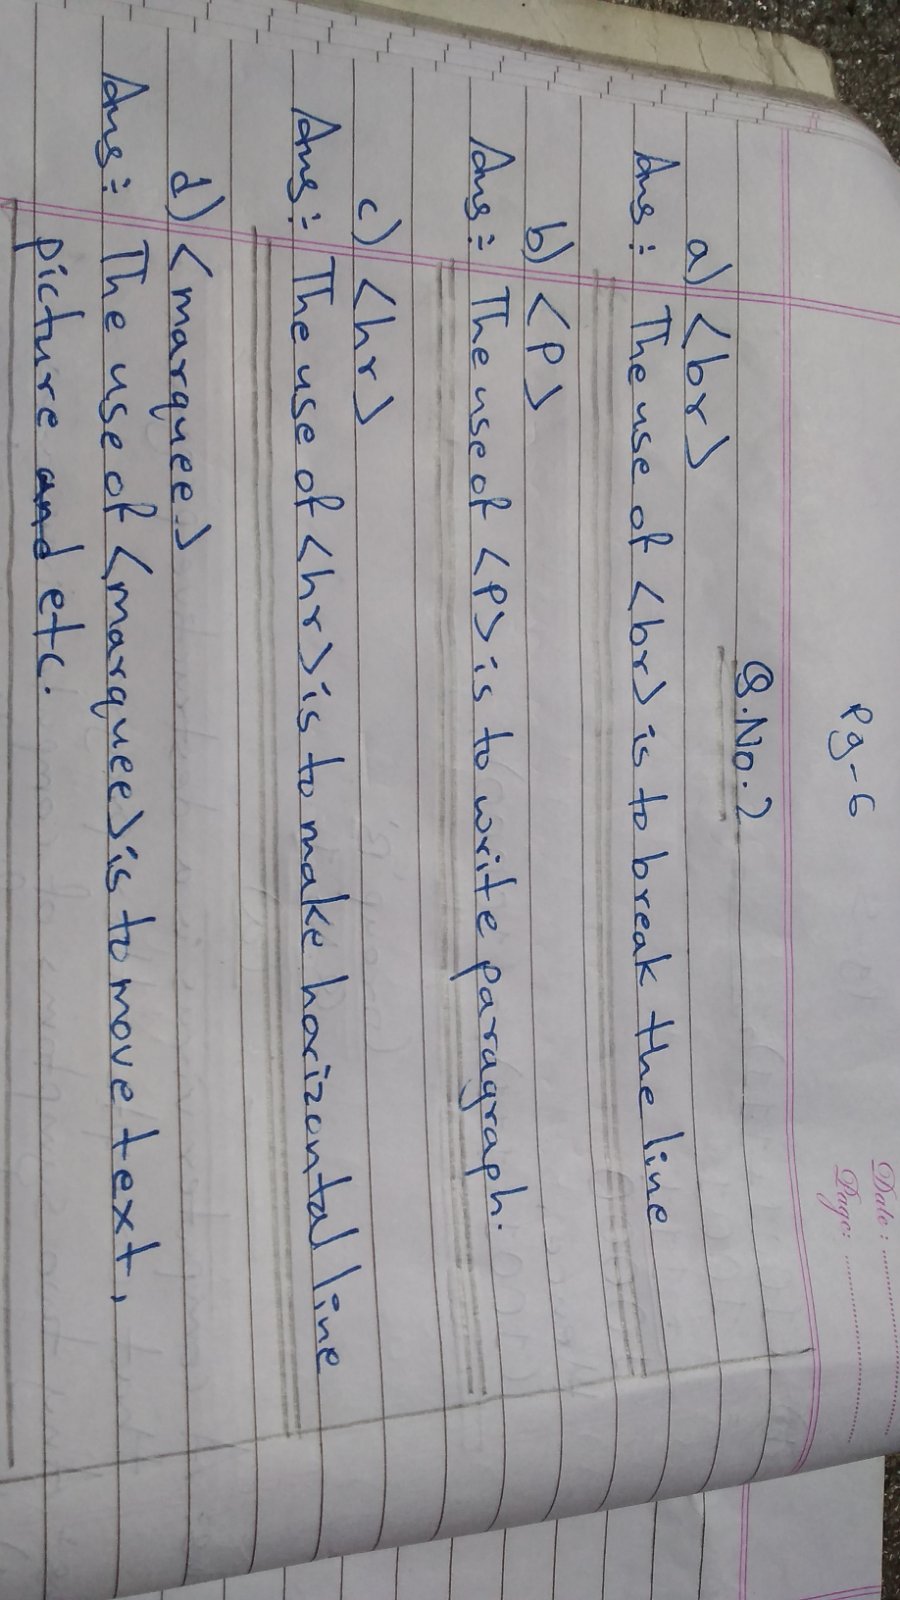 Pg-6
Date: ..................
Page: ..................
Q.No.2
a) <br>
Ans: The use of <br> is to break the line
b) <P>
Ans: The use of <P> is to write paragraph.
c) <hr>
Ans: The use of <hr> is to make horizontal line
d) <marquee>
Ans: The use of <marquee> is to move text,
picture and etc.